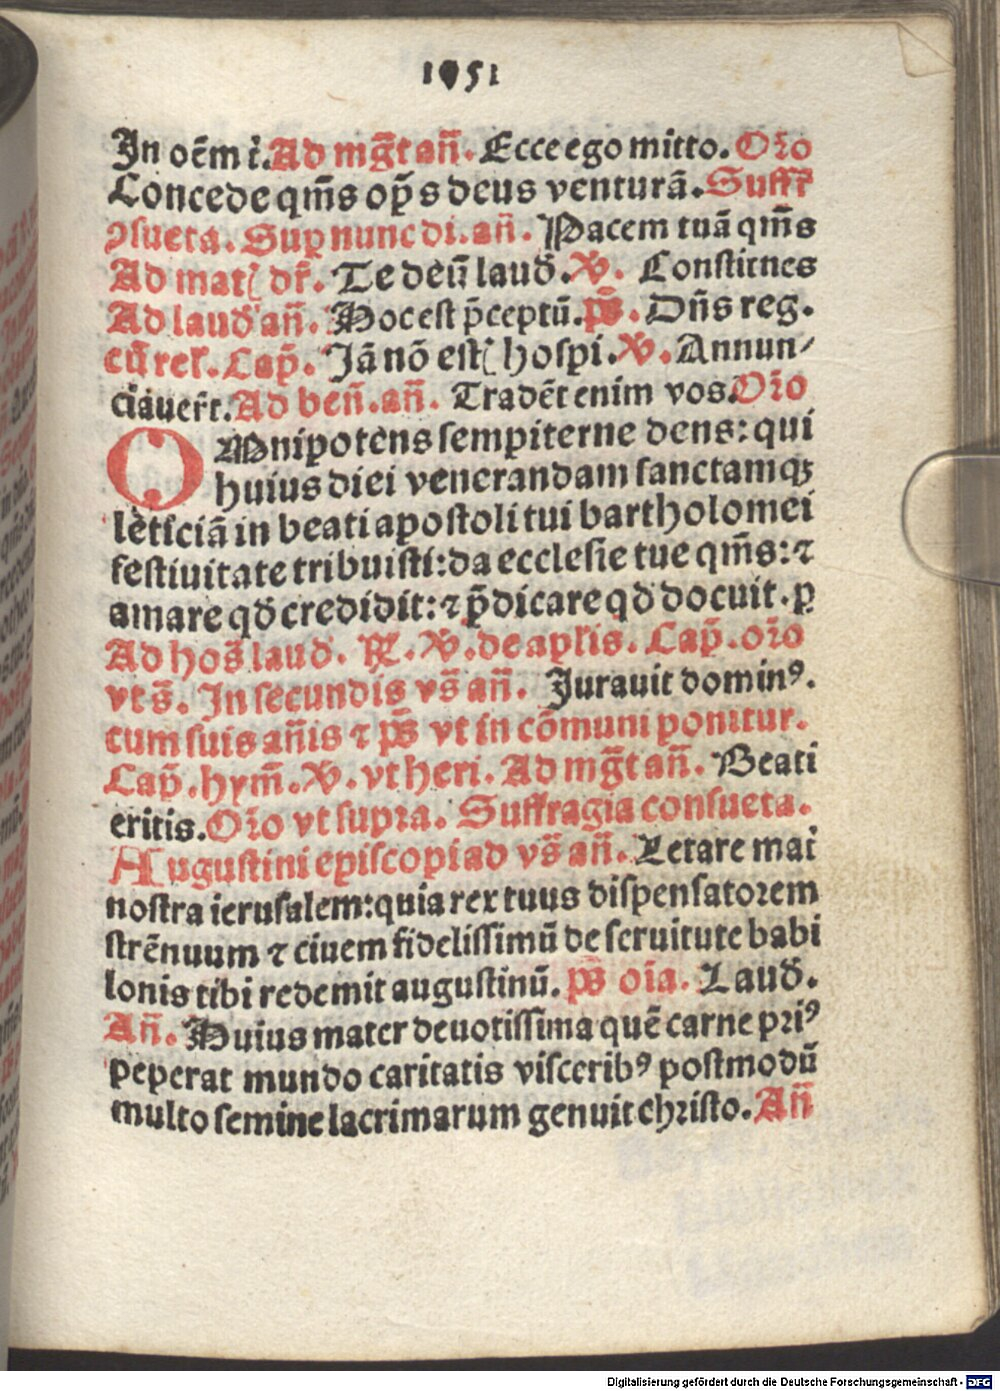 1051
In oēm t̄. Ad mg̅t an̄. Ecce ego mitto. Oꝛo
Concede qm̄s op̄s deus venturā. Suffꝛ̄
ꝯsueta. Suꝑ nunc di. an̄. Pacem tuā qm̄s
Ad mat dr̄. Te deū laud. ℣. Constitues
Ad laud an̄. Hoc est p̄ceptū. ps̄. Dn̄s reg.
cū rel. Cap̄. Jā nō est hospi. ℣. Annun⸗
ciauer̄t. Ad ben̄. an̄. Tradēt enim vos. Oꝛo
OMnipotēns sempiterne deus: qui
huius diei venerandam sanctamqꝫ
leticiā in beati apostoli tui bartholomei
festiuitate tribuisti: da ecclesie tue qm̄s: ⁊
amare qd̄ credidit: ⁊ p̄dicare qd̄ docuit. ꝑ
Ad hoꝛ laud. ℟. ℣. de aplis. Cap̄. oꝛo
vt s̄. In secundis vs̄ an̄. Jurauit dominꝰ.
cum suis an̄is ⁊ ps̄ vt in cōmuni ponitur.
Cap̄. hym̄. ℣. vt heri. Ad mg̅t an̄. Beati
eritis. Oꝛo vt supꝛa. Suffragia consueta.
Augustini episcopi ad vs̄ an̄. Letare mat̄
nostra ierusalem: quia rex tuus dispensatoꝛem
strēnuum ⁊ ciuem fidelissimū de seruitute babi
lonis tibi redemit augustinū. ps̄ oīa. Laud.
An̄. Huius mater deuotissima quē carne pꝛiꝰ
peperat mundo caritatis visceribꝰ postmodū
multo semine lacrimarum genuit chꝛisto. An̄
Digitalisierung gefördert durch die Deutsche Forschungsgemeinschaft - DFG